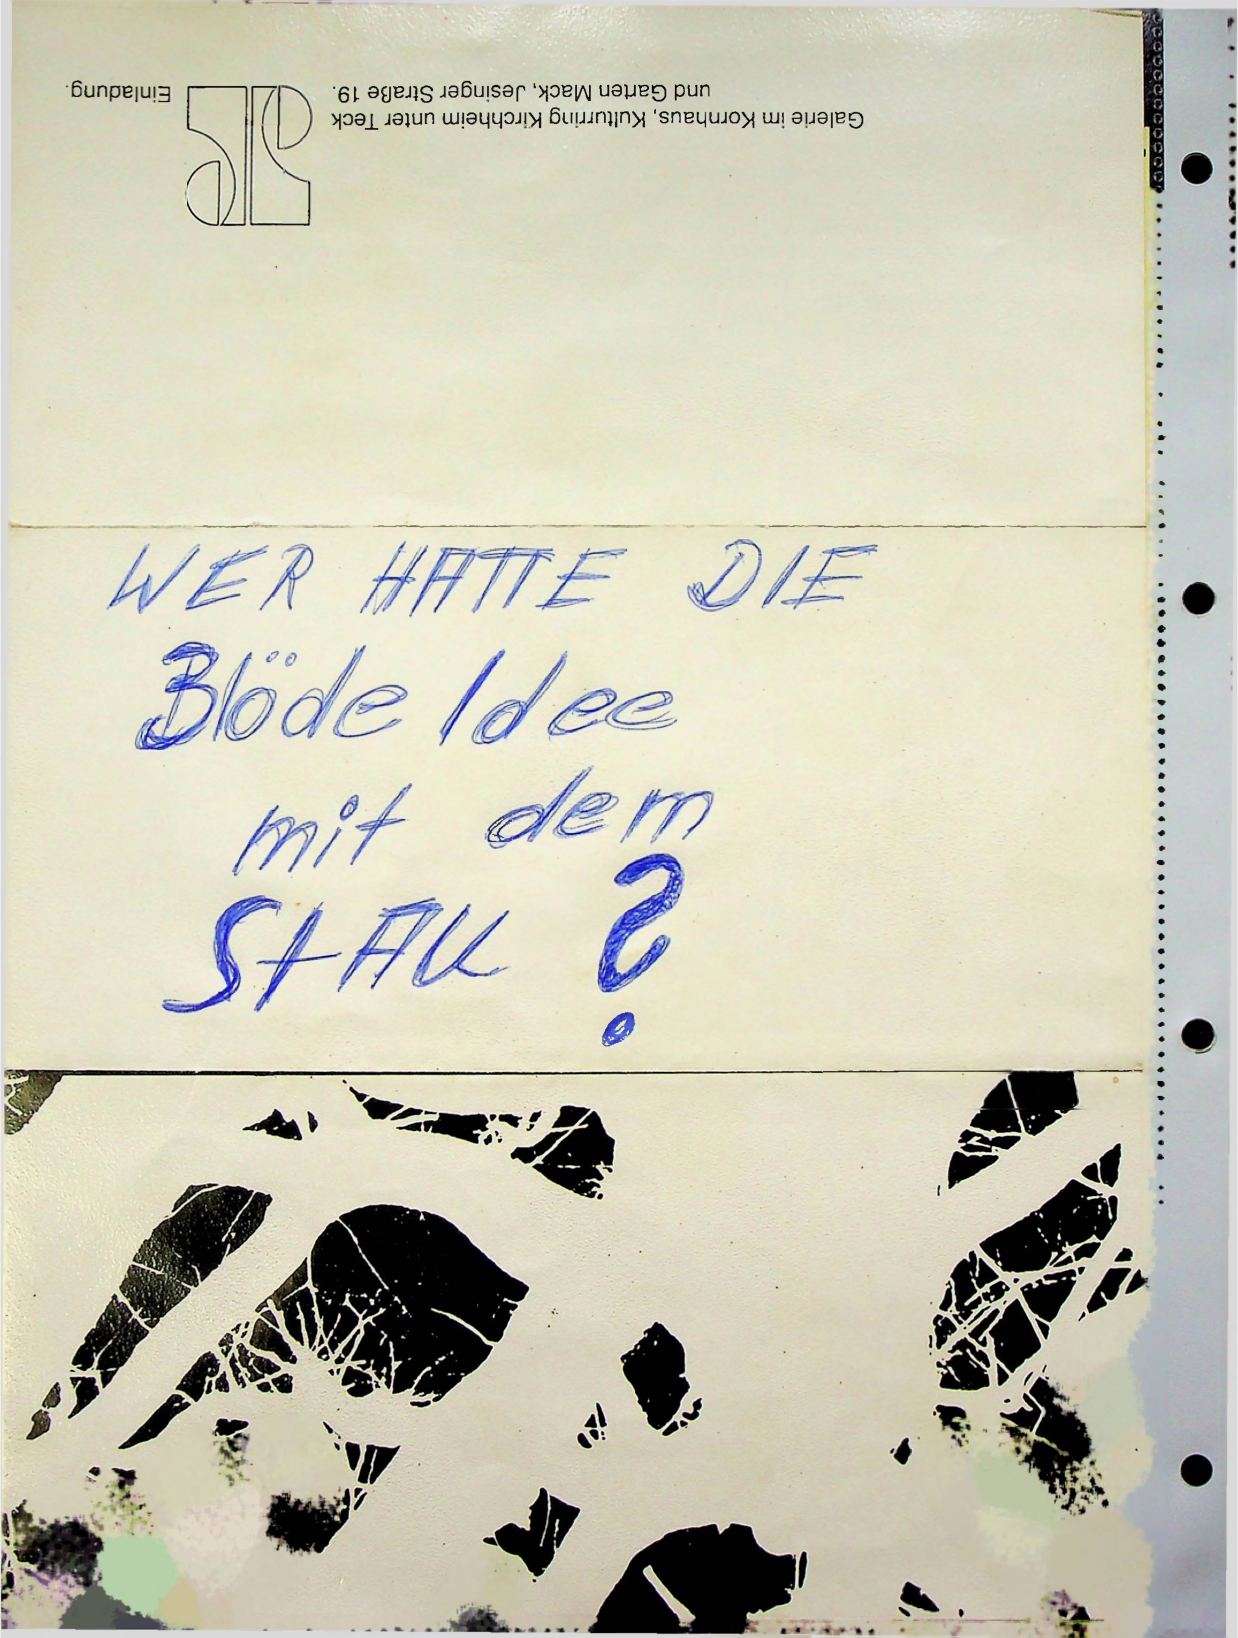 Einladung.
Galerie im Kornhaus, Kulturring Kirchheim unter Teck
und Garten Mack, Jesinger Straße 19.
WER HATTE DIE
Blöde Idee
mit dem
StAU ?